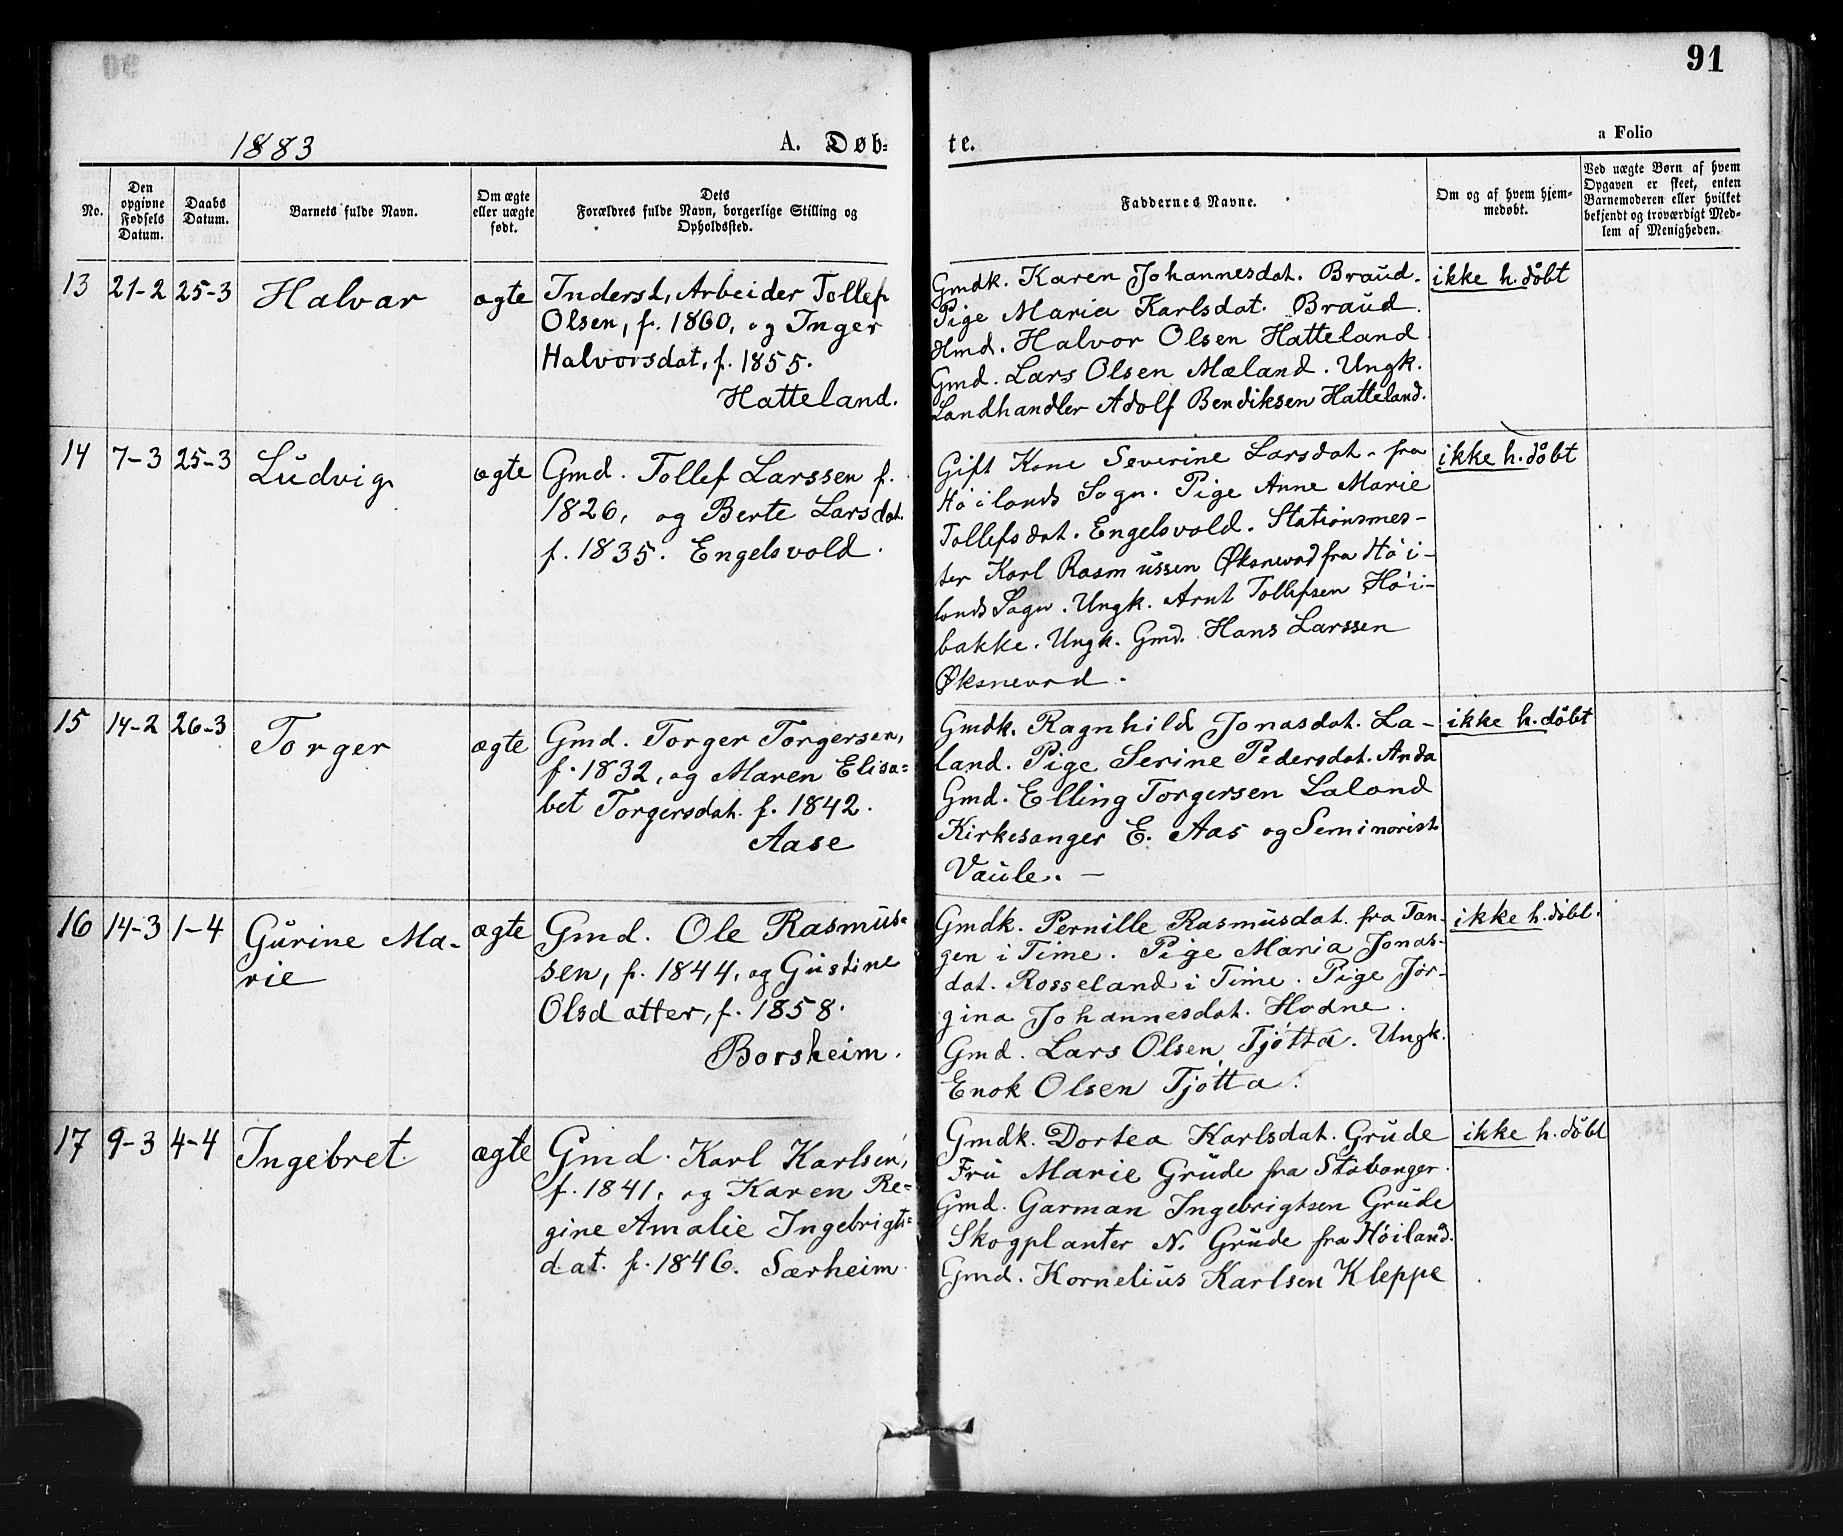 91
1883
A. Døb-
te.
a Folio
No.
Den
opgivne
Fødsels
Datum.
Daabs
Datum.
Barnets fulde Navn.
Om ægte
eller uægte
født.
Dets
Forældres fulde Navn, borgerlige Stilling og
Opholdssted.
Faddernes Navne.
Om og af hvem hjem-
medøbt.
Ved uægte Børn af hvem
Opgaven er skeet, enten
Barnemoderen eller hvilket
bekjendt og troværdigt Med-
lem af Menigheden.
13 21-2 25-3 Halvar ægte
Inderst, Arbeider Tollef
Olsen, f. 1860, og Inger
Halvorsdat, f. 1855.
Hatteland.
Gmdk. Karen Johannesdat. Braud.
Pige Maria Karlsdat. Braud.
Hmd. Halvor Olsen Hatteland
Gmd. Lars Olsen Mæland. Ungk.
Landhandler Adolf Bendiksen Hatteland.
ikke h. døbt
14 7-3 25-3 Ludvig ægte
Gmd. Tollef Larssen f.
1826, og Berte Larsdat.
f. 1835. Engelsvold.
Gift Kone Severine Larsdat. fra
Høilands Sogn. Pige Anne Marie
Tollefsdat. Engelsvold. Stationsmes-
ter Karl Rasmussen Øksnevad fra Høi-
lands Sogn. Ungk. Arnt Tollefsen Høi-
bakke. Ungk. Gmd. Hans Larssen
Øksnevad.
ikke h. døbt
15 14-2 26-3 Torger ægte
Gmd. Torger Torgersen,
f. 1832, og Maren Elisa=
bet Torgersdat. f. 1842.
Aase
Gmdk. Ragnhild Jonasdat. La-
land. Pige Serine Pedersdat. Anda
Gmd. Elling Torgersen Laland
Kirkesanger E. Aas og Seminarist
Vaule. —
ikke h. døbt
16 14-3 1-4 Gurine Ma-
rie
ægte
Gmd. Ole Rasmus=
sen, f. 1844, og Gustine
Olsdatter, f. 1858.
Borsheim.
Gmdk. Pernille Rasmusdat. fra Tan-
gen i Time. Pige Maria Jonas-
dat. Rosseland i Time. Pige Jør-
gina Johannesdat. Hodne.
Gmd. Lars Olsen Tjøtta. Ungk.
Enok Olsen Tjøtta.
ikke h. døbt.
17 9-3 4-4 Ingebret ægte
Gmd. Karl Karlsen,
f. 1841, og Karen Re=
gine Amalie Ingebrigts=
dat. f. 1846. Særheim
Gmdk. Dortea Karlsdat. Grude
Fru Marie Grude fra Stabanger.
Gmd. Garman Ingebrigtsen Grude
Skogplanter N. Grude fra Høiland.
Gmd. Kornelius Karlsen Kleppe
ikke h. døbt